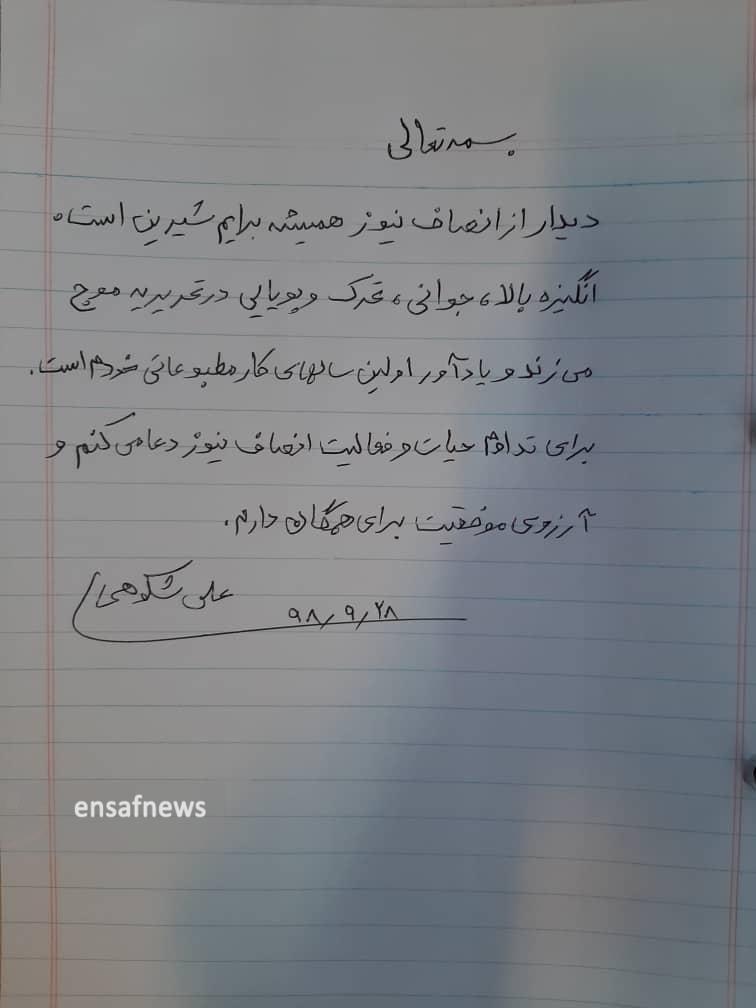 بسمه تعالی
دیدار از انصاف نیوز همیشه برایم شیرین است.
انگیزه بالا، جوانی، تحرک و پویایی در تحریریه موج
می زند و یادآور اولین سالهای کار مطبوعاتی خودم است.
برای تداوم حیات و فعالیت انصاف نیوز دعا می کنم و
آرزوی موفقیت برای همگان دارم.
علی شکوهی
۹۸/۹/۲۸
ensafnews